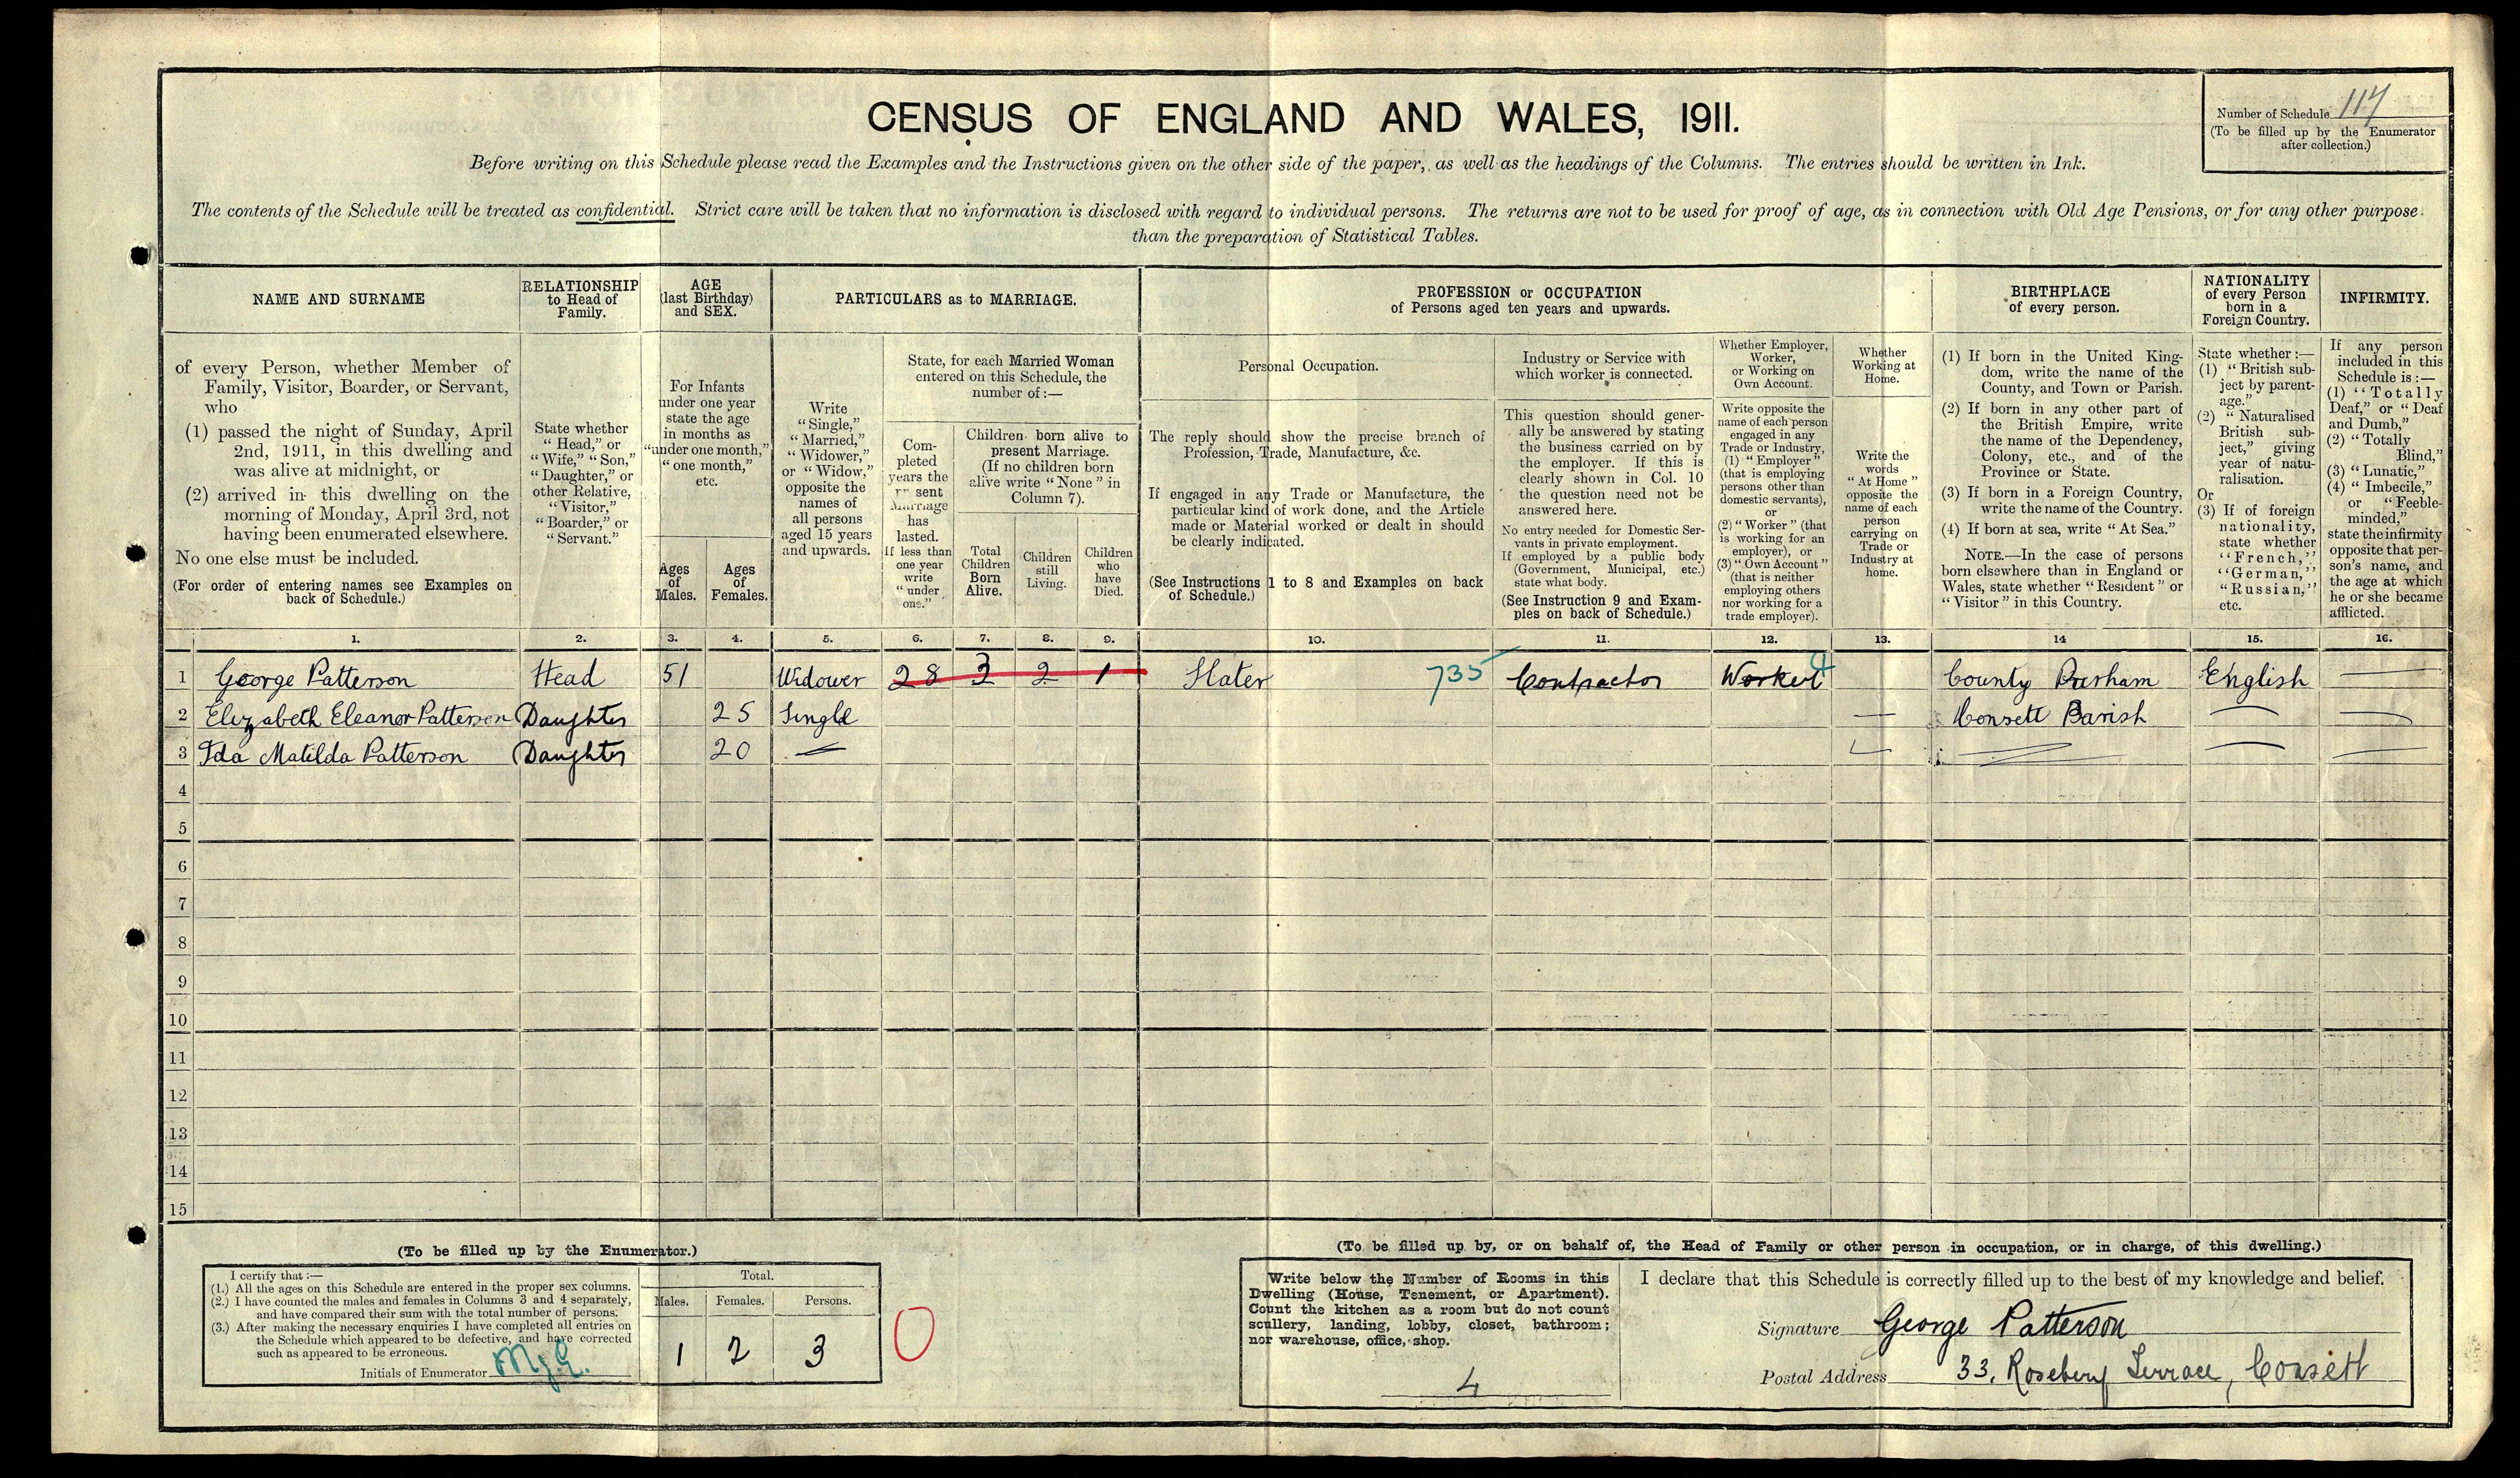 CENSUS OF ENGLAND AND WALES, 1911.
Number of Schedule 117
(To be filled up by the Enumerator
after collection.)
Before writing on this Schedule please read the Examples and the Instructions given on the other side of the paper, as well as the headings of the Columns. The entries should be written in Ink.
The contents of the Schedule will be treated as confidential. Strict care will be taken that no information is disclosed with regard to individual persons. The returns are not to be used for proof of age, as in connection with Old Age Pensions, or for any other purpose
than the preparation of Statistical Tables.
NAME AND SURNAME
of every Person, whether Member of
Family, Visitor, Boarder, or Servant,
who
(1) passed the night of Sunday, April
2nd, 1911, in this dwelling and
was alive at midnight, or
(2) arrived in this dwelling on the
morning of Monday, April 3rd, not
having been enumerated elsewhere.
No one else must be included.
(For order of entering names see Examples on
back of Schedule.)
RELATIONSHIP
to Head of
Family.
State whether
"Head," or
"Wife," "Son,"
"Daughter," or
other Relative,
"Visitor,"
"Boarder," or
"Servant."
AGE
(last Birthday)
and SEX.
For Infants
under one year
state the age
in months as
"under one month,"
"one month,"
etc.
Ages
of
Males.
Ages
of
Females.
PARTICULARS as to MARRIAGE.
Write
"Single,"
"Married,"
"Widower,"
or "Widow,"
opposite the
names of
all persons
aged 15 years
and upwards.
State, for each Married Woman
entered on this Schedule, the
number of:—
Com-
pleted
years the
sent
Marriage
has
lasted.
If less than
one year
write
"under
one."
Children born alive to
present Marriage.
(If no children born
alive write "None" in
Column 7).
Total
Children
Born
Alive.
Children
still
Living.
Children
who
have
Died.
PROFESSION or OCCUPATION
of Persons aged ten years and upwards.
Personal Occupation.
The reply should show the precise branch of
Profession, Trade, Manufacture, &c.
If engaged in any Trade or Manufacture, the
particular kind of work done, and the Article
made or Material worked or dealt in should
be clearly indicated.
(See Instructions 1 to 8 and Examples on back
of Schedule.)
Industry or Service with
which worker is connected.
This question should gener-
ally be answered by stating
the business carried on by
the employer. If this is
clearly shown in Col. 10
the question need not be
answered here.
No entry needed for Domestic Ser-
vants in private employment.
If employed by a public body
(Government, Municipal, etc.)
state what body.
(See Instruction 9 and Exam-
ples on back of Schedule.)
Whether Employer,
Worker,
or Working on
Own Account.
Write opposite the
name of each person
engaged in any
Trade or Industry,
(1) "Employer"
(that is employing
persons other than
domestic servants),
or
(2) "Worker" (that
is working for an
employer), or
(3) "Own Account"
(that is neither
employing others
nor working for a
trade employer).
Whether
Working at
Home.
Write the
words
"At Home"
opposite the
name of each
person
carrying on
Trade or
Industry at
home.
BIRTHPLACE
of every person.
(1) If born in the United King-
dom, write the name of the
County, and Town or Parish.
(2) If born in any other part of
the British Empire, write
the name of the Dependency,
Colony, etc., and of the
Province or State.
(3) If born in a Foreign Country,
write the name of the Country.
(4) If born at sea, write "At Sea."
NOTE.—In the case of persons
born elsewhere than in England or
Wales, state whether "Resident" or
"Visitor" in this Country.
NATIONALITY
of every Person
born in a
Foreign Country.
State whether:—
(1) "British sub-
ject by parent-
age."
(2) "Naturalised
British sub-
ject," giving
year of natu-
ralisation.
Or
(3) If of foreign
nationality,
state whether
"French,"
"German,"
"Russian,"
etc.
INFIRMITY.
If any person
included in this
Schedule is:—
(1) "Totally
Deaf," or "Deaf
and Dumb,"
(2) "Totally
Blind,"
(3) "Lunatic,"
(4) "Imbecile,"
or "Feeble-
minded,"
state the infirmity
opposite that per-
son's name, and
the age at which
he or she became
afflicted.
1. 2. 3. 4. 5. 6. 7. 8. 9. 10. 11. 12. 13. 14 15. 16.
1 George Patterson Head 51 Widower 28 3 2 1 Slater 735 Contractor Worker 4 County Durham English —
2 Elizabeth Eleanor Patterson Daughter 25 Single — Consett Parish — —
3 Ida Matilda Patterson Daughter 20 — — —
4
5
6
7
8
9
10
11
12
13
14
15
(To be filled up by the Enumerator.)
I certify that:—
(1.) All the ages on this Schedule are entered in the proper sex columns.
(2.) I have counted the males and females in Columns 3 and 4 separately,
and have compared their sum with the total number of persons.
(3.) After making the necessary enquiries I have completed all entries on
the Schedule which appeared to be defective, and have corrected
such as appeared to be erroneous.
Initials of Enumerator
Total.
Males. Females. Persons.
1 2 3
0
(To be filled up by, or on behalf of, the Head of Family or other person in occupation, or in charge, of this dwelling.)
Write below the Number of Rooms in this
Dwelling (House, Tenement, or Apartment).
Count the kitchen as a room but do not count
scullery, landing, lobby, closet, bathroom;
nor warehouse, office, shop.
4
I declare that this Schedule is correctly filled up to the best of my knowledge and belief.
Signature George Patterson
Postal Address 33, Rosebery Terrace, Consett